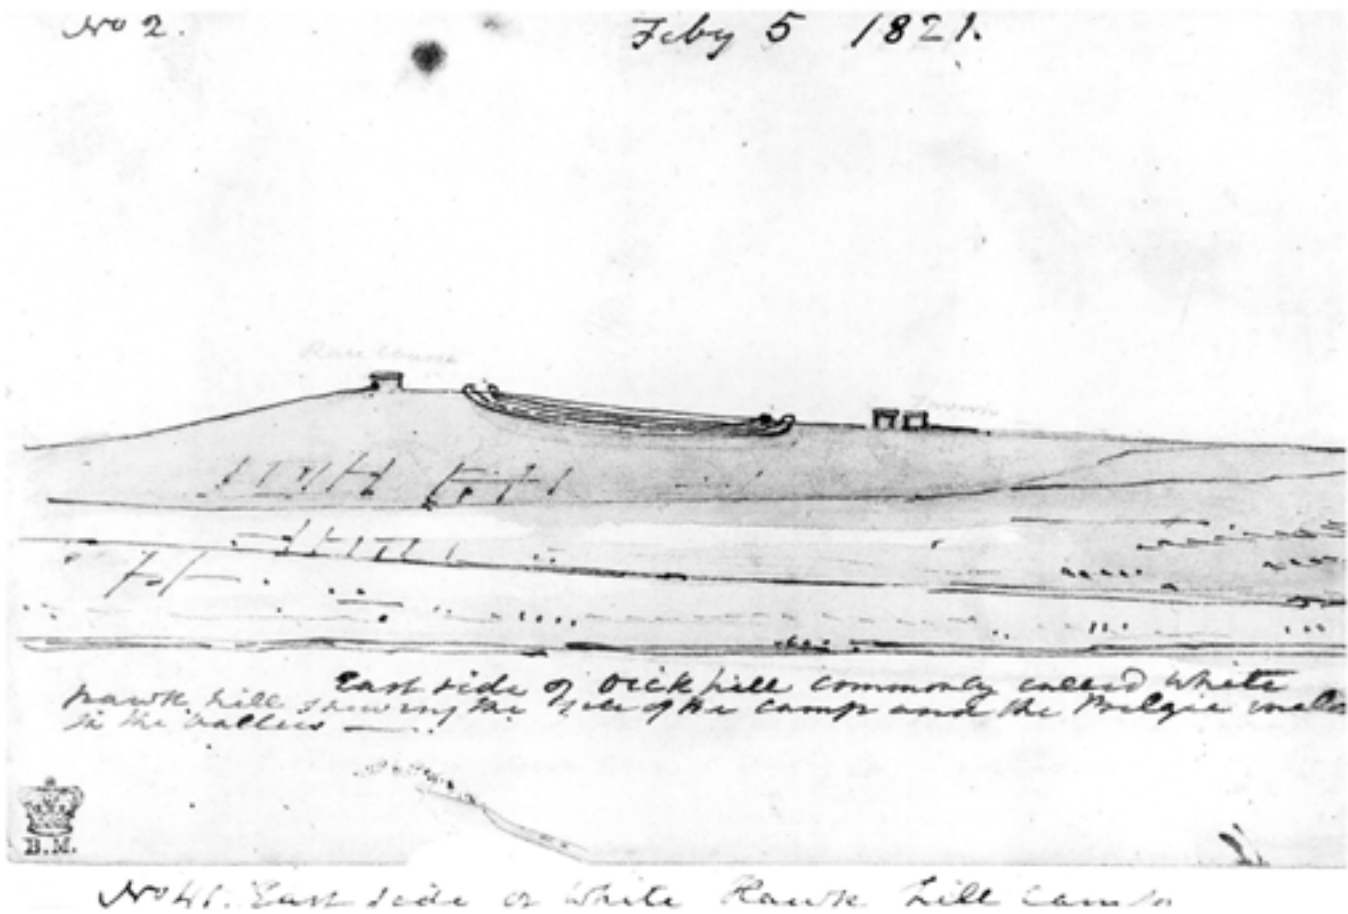 No 2.
Feby 5 1821.
Race Course
East side of Dick hill commonly called White
hawk hill shewing the site of the Camp and the Belgic
in the vallies —.
B.M.
East side of White Hawk hill Camp